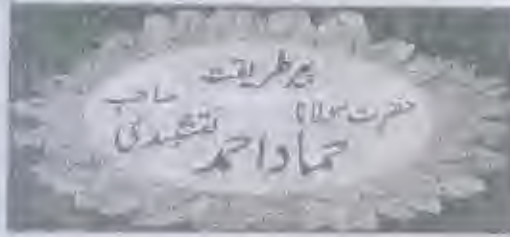 پیر طریقت
حضرت مولانا
حماد احمد نقشبندی صاحب